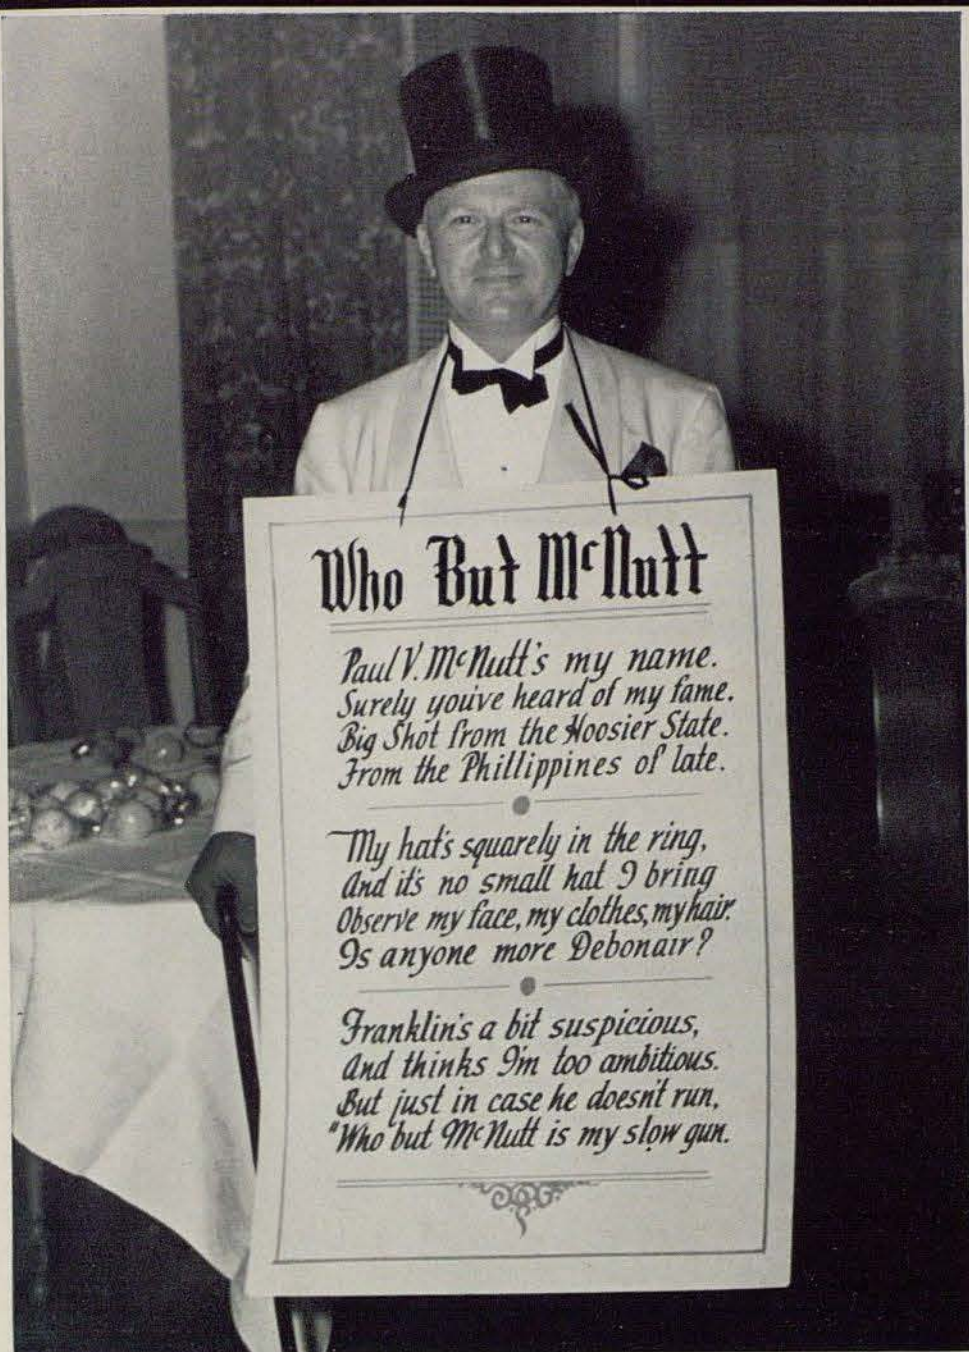 Who But McNutt
Paul V. McNutt's my name.
Surely you've heard of my fame.
Big Shot from the Hoosier State.
From the Phillippines of late.
My hat's squarely in the ring,
And it's no small hat I bring
Observe my face, my clothes, my hair.
Is anyone more Debonair?
Franklin's a bit suspicious,
And thinks I'm too ambitious.
But just in case he doesn't run,
"Who but McNutt is my slow gun.